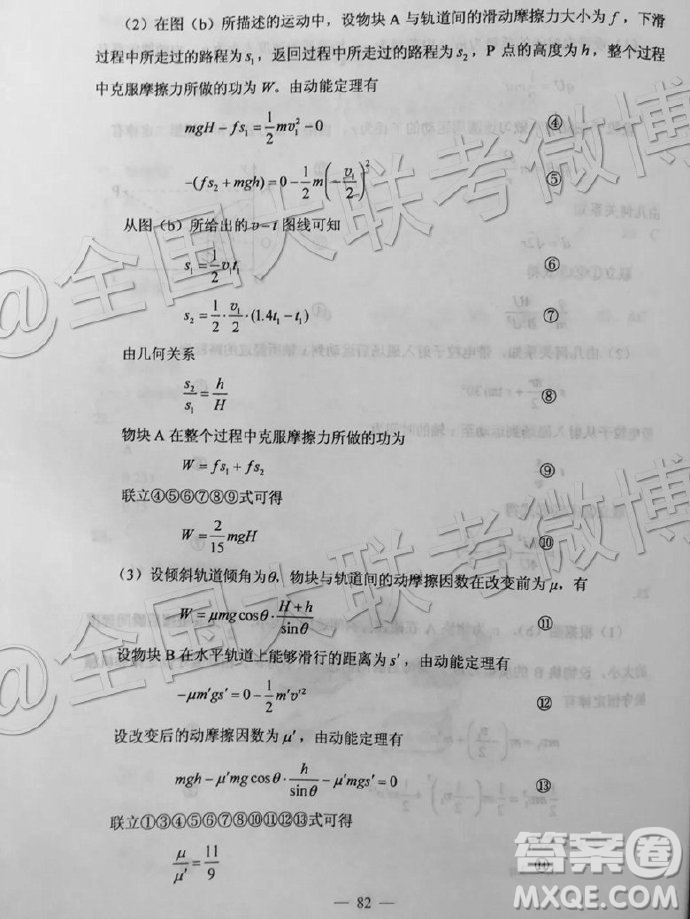 (2) 在图 (b) 所描述的运动中，设物块 A 与轨道间的滑动摩擦力大小为 f，下滑
过程中所走过的路程为 s₁，返回过程中所走过的路程为 s₂，P 点的高度为 h，整个过
程中克服摩擦力所做的功为 W。由动能定理有
mgH − fs₁ = \frac{1}{2}mv₁² − 0 ④
−(fs₂ + mgh) = 0 − \frac{1}{2}m(−\frac{v₁}{2})² ⑤
从图 (b) 所给出的 v−t 图线可知
s₁ = \frac{1}{2}v₁t₁ ⑥
s₂ = \frac{1}{2}·\frac{v₁}{2}·(1.4t₁ − t₁) ⑦
由几何关系
\frac{s₂}{s₁} = \frac{h}{H} ⑧
物块 A 在整个过程中克服摩擦力所做的功为
W = fs₁ + fs₂ ⑨
联立④⑤⑥⑦⑧⑨式可得
W = \frac{2}{15}mgH ⑩
(3) 设倾斜轨道倾角为θ，物块与轨道间的动摩擦因数在改变前为 μ，有
W = μmg cosθ·\frac{H+h}{sinθ} ⑪
设物块 B 在水平轨道上能够滑行的距离为 s′，由动能定理有
−μm′gs′ = 0 − \frac{1}{2}m′v′² ⑫
设改变后的动摩擦因数为 μ′，由动能定理有
mgh − μ′mg cosθ·\frac{h}{sinθ} − μ′mgs′ = 0 ⑬
联立①③④⑤⑥⑦⑧⑨⑩⑪⑫⑬式可得
\frac{μ}{μ′} = \frac{11}{9}
— 82 —
@全国大联考微博
@全国大联考微博
答案圈
MXQE.COM